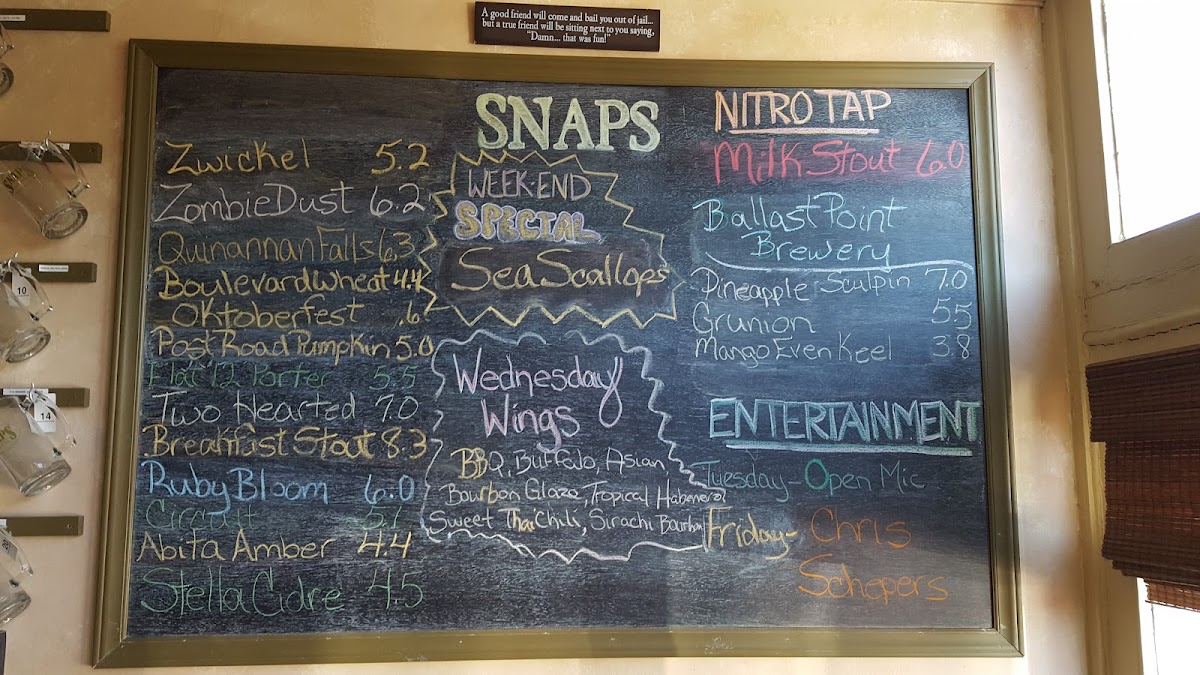 A good friend will come and bail you out of jail...
but a true friend will be sitting next to you saying,
"Damn... that was fun!"
SNAPS
Zwickel 5.2
Zombie Dust 6.2
Quinannan Falls 6.3
Boulevard Wheat 4.4
Oktoberfest .6
Post Road Pumpkin 5.0
Flat 12 Porter 5.5
Two Hearted 7.0
Breakfast Stout 8.3
Ruby Bloom 6.0
Circuit 5.1
Abita Amber 4.4
Stella Cidre 4.5
WEEK-END
SPECIAL
Sea Scallops
Wednesday
Wings
BBQ, Buffalo, Asian,
Bourbon Glaze, Tropical Habenero,
Sweet Thai Chili, Sirachi Bourbon
NITRO TAP
Milk Stout 6.0
Ballast Point
Brewery
Pineapple Sculpin 7.0
Grunion 5.5
Mango Even Keel 3.8
ENTERTAINMENT
Tuesday - Open Mic
Friday - Chris
Schepers
10
14